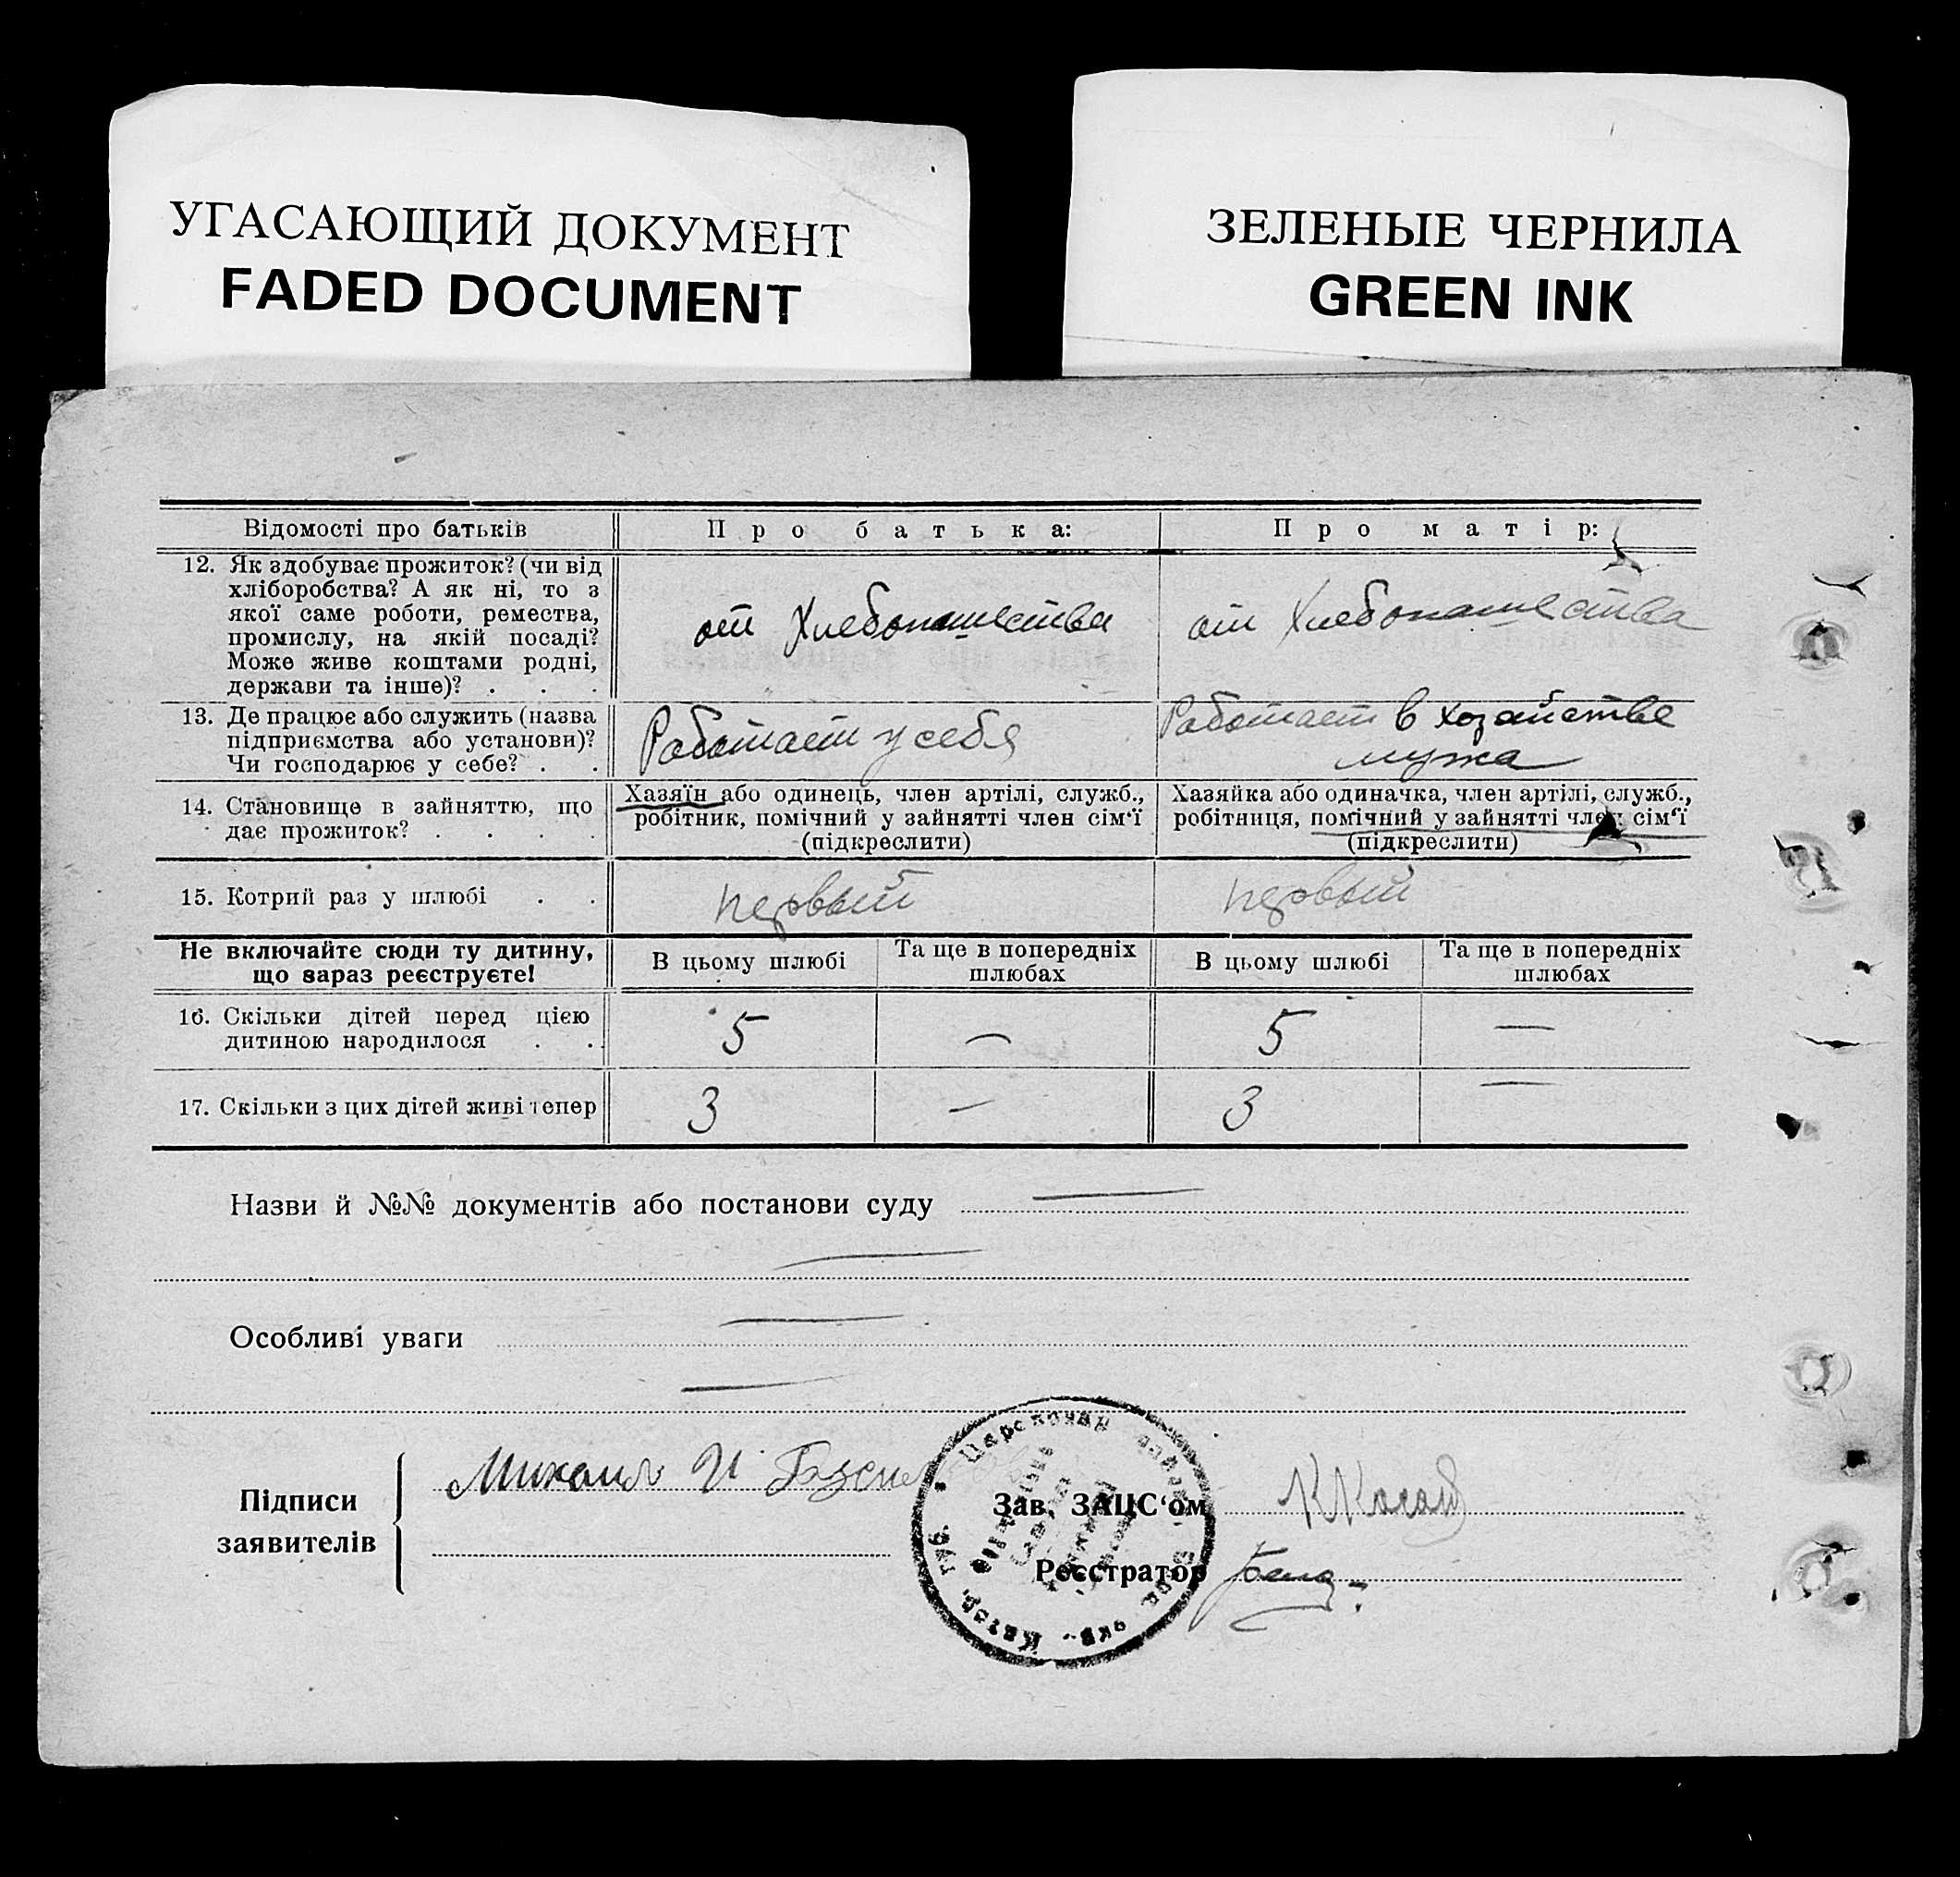 УГАСАЮЩИЙ ДОКУМЕНТ
FADED DOCUMENT
ЗЕЛЕНЫЕ ЧЕРНИЛА
GREEN INK
Відомості про батьків
Про батька:
Про матір:
12. Як здобуває прожиток? (чи від
хліборобства? А як ні, то з
якої саме роботи, ремества,
промислу, на якій посаді?
Може живе коштами родні,
держави та інше)? . . .
от Хлебопашества
от Хлебопашества
13. Де працює або служить (назва
підприємства або установи)?
Чи господарює у себе? . .
Работает у себя
Работает в хозайстве
мужа
14. Становище в зайняттю, що
дає прожиток? . . . .
Хазяїн або одинець, член артілі, служб.,
робітник, помічний у зайнятті член сім‘ї
(підкреслити)
Хазяйка або одиначка, член артілі, служб.,
робітниця, помічний у зайнятті член сім‘ї
(підкреслити)
15. Котрий раз у шлюбі . .
первый
первый
Не включайте сюди ту дитину,
що зараз реєструєте!
В цьому шлюбі
Та ще в попередніх
шлюбах
В цьому шлюбі
Та ще в попередніх
шлюбах
16. Скільки дітей перед цією
дитиною народилося . .
5
—
5
—
17. Скільки з цих дітей живі тепер
3
—
3
—
Назви й №№ документів або постанови суду —
—
Особливі уваги —
—
Підписи
заявителів
Михаил И
Зав. ЗАЦС‘ом
Реєстратор
Катер. губ.